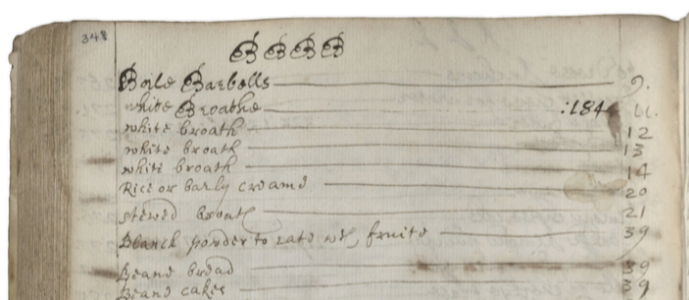 348
B B B B
Boile Barbells 9.
white Broathe :184 11.
white broath 12
white broath 13
white broath 14
Rice or barly creame 20
stewed broath 21
Blanch powder to eate wth fruite 39
Beane bread 39
Beane cakes 39